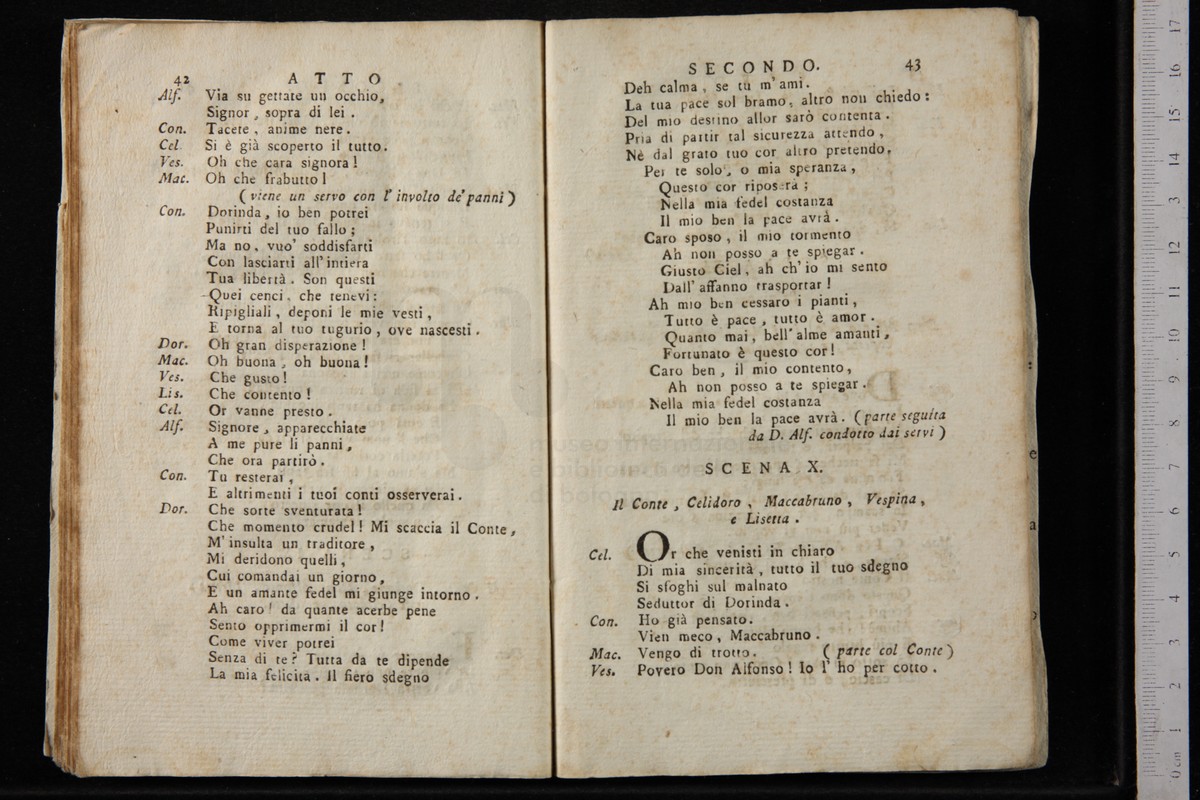 42 ATTO
Alf. Via su gettate un occhio,
Signor, sopra di lei.
Con. Tacete, anime nere.
Cel. Si è già scoperto il tutto.
Ves. Oh che cara signora!
Mac. Oh che frabutto!
(viene un servo con l'involto de' panni)
Con. Dorinda, io ben potrei
Punirti del tuo fallo;
Ma no, vuo' soddisfarti
Con lasciarti all'intiera
Tua libertà. Son questi
Quei cenci, che tenevi:
Ripigliali, deponi le mie vesti,
E torna al tuo tugurio, ove nascesti.
Dor. Oh gran disperazione!
Mac. Oh buona, oh buona!
Ves. Che gusto!
Lis. Che contento!
Cel. Or vanne presto.
Alf. Signore, apparecchiate
A me pure li panni,
Che ora partirò.
Con. Tu resterai,
E altrimenti i tuoi conti osserverai.
Dor. Che sorte sventurata!
Che momento crudel! Mi scaccia il Conte,
M'insulta un traditore,
Mi deridono quelli,
Cui comandai un giorno,
E un amante fedel mi giunge intorno.
Ah caro! da quante acerbe pene
Sento opprimermi il cor!
Come viver potrei
Senza di te? Tutta da te dipende
La mia felicità. Il fiero sdegno
SECONDO. 43
Deh calma, se tu m'ami.
La tua pace sol bramo, altro non chiedo:
Del mio destino allor sarò contenta.
Pria di partir tal sicurezza attendo,
Nè dal grato tuo cor altro pretendo.
Per te solo, o mia speranza,
Questo cor riposerà;
Nella mia fedel costanza
Il mio ben la pace avrà.
Caro sposo, il mio tormento
Ah non posso a te spiegar.
Giusto Ciel, ah ch'io mi sento
Dall'affanno trasportar!
Ah mio ben cessaro i pianti,
Tutto è pace, tutto è amor.
Quanto mai, bell'alme amanti,
Fortunato è questo cor!
Caro ben, il mio contento,
Ah non posso a te spiegar.
Nella mia fedel costanza
Il mio ben la pace avrà. (parte seguita
da D. Alf. condotto dai servi)
SCENA X.
Il Conte, Celidoro, Maccabruno, Vespina,
e Lisetta.
Cel. Or che venisti in chiaro
Di mia sincerità, tutto il tuo sdegno
Si sfoghi sul malnato
Seduttor di Dorinda.
Con. Ho già pensato.
Vien meco, Maccabruno.
Mac. Vengo di trotto. (parte col Conte)
Ves. Povero Don Alfonso! Io l'ho per cotto.